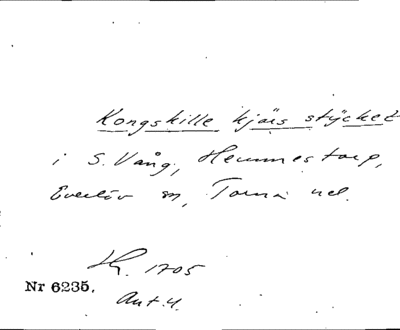 Kongskille kjärs stÿcket
i S. Vång, Hemmestorp,
Everlöv sn, Torna hd.
1705
Nr 6235.
Ant. 4.